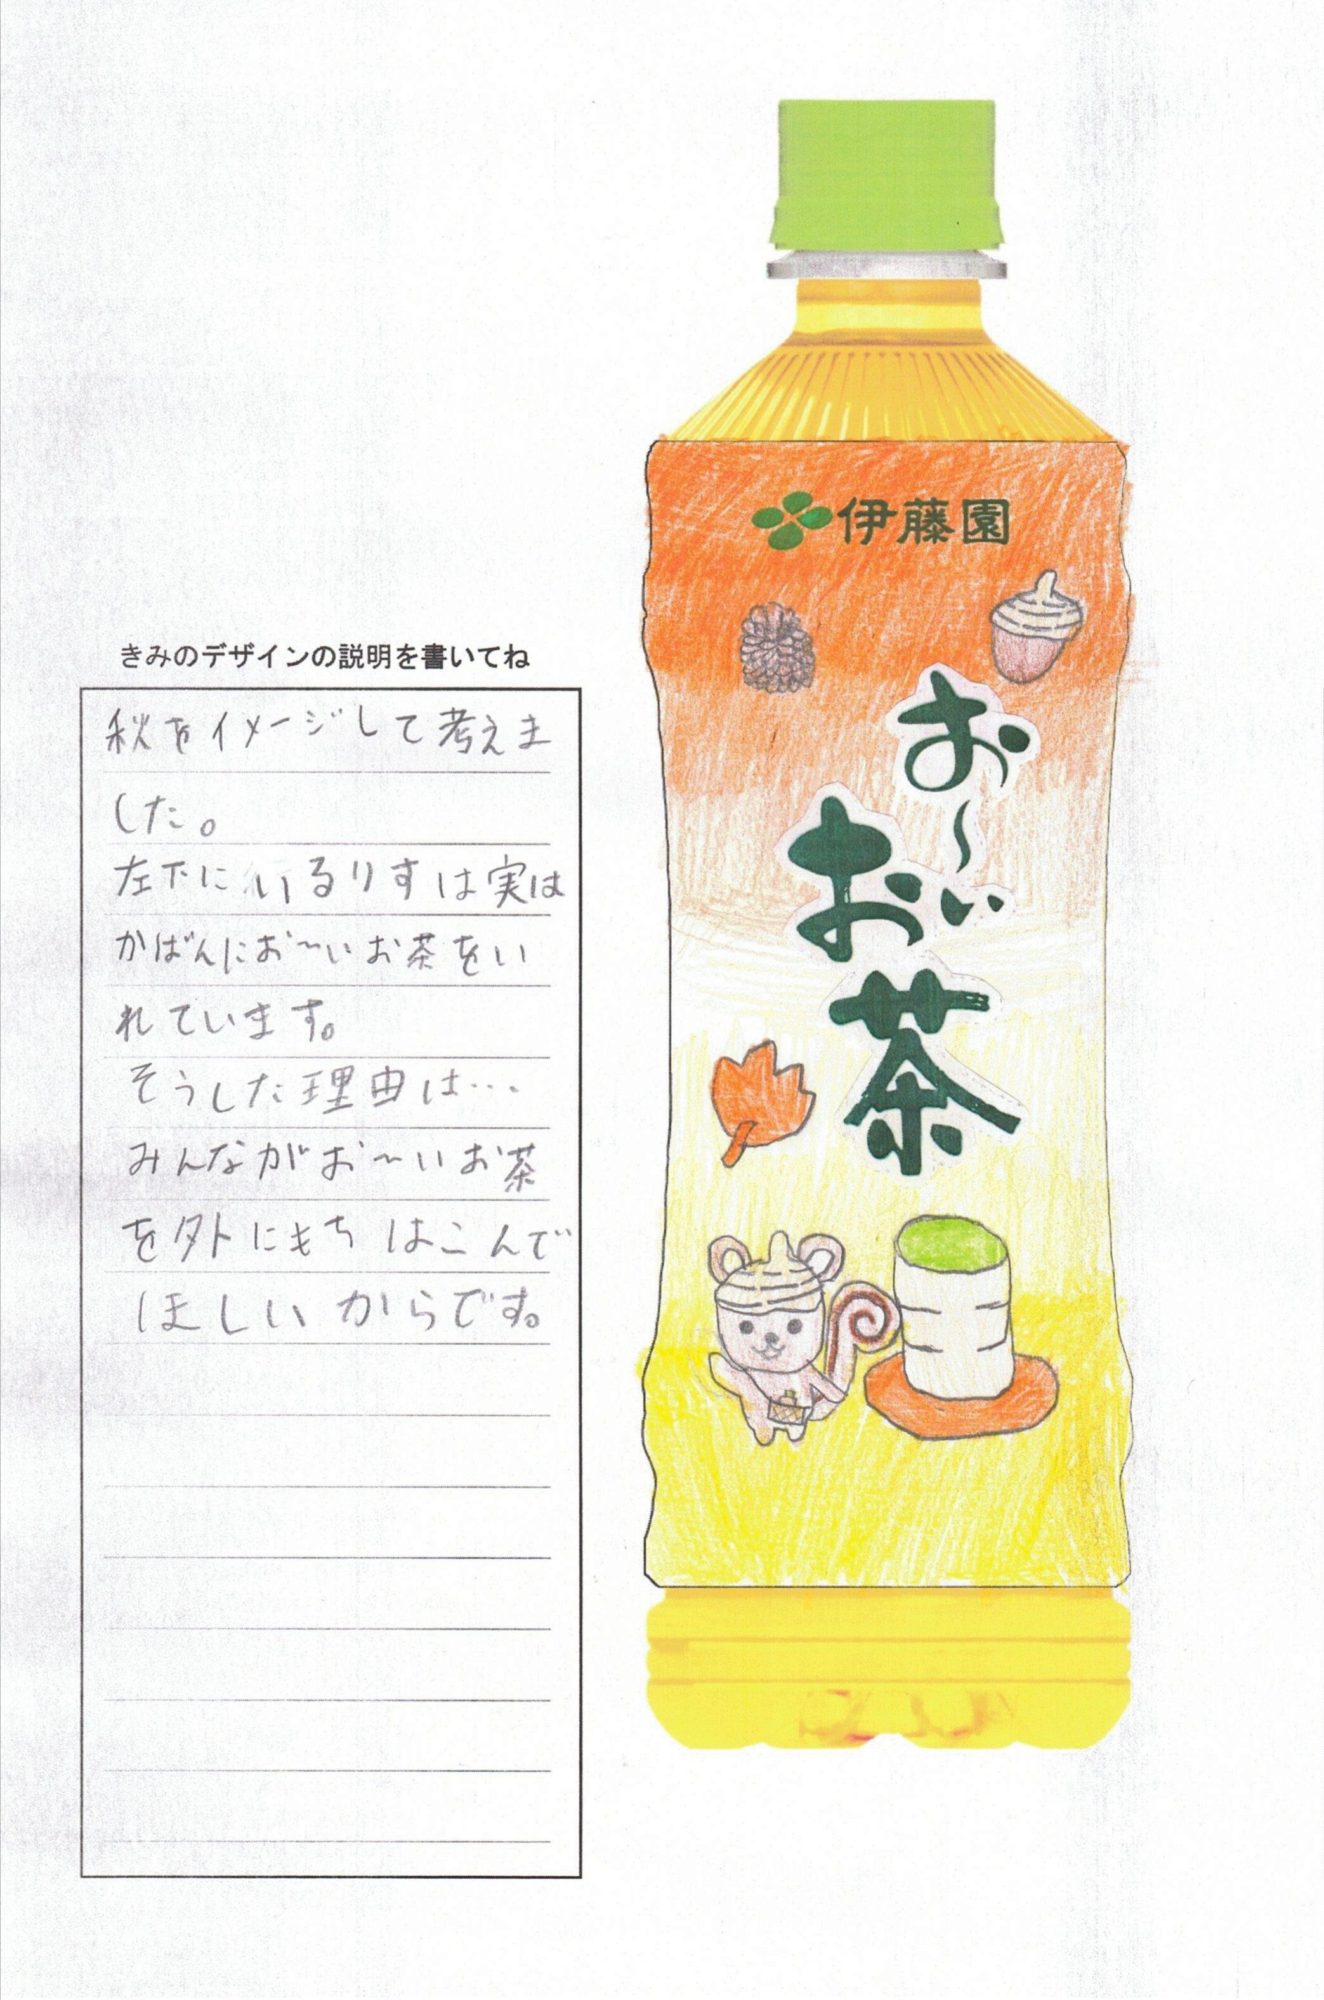 きみのデザインの説明を書いてね
秋をイメージして考えま
した。
左下にいるりすは実は
かばんにお～いお茶をい
れています。
そうした理由は…
みんながお～いお茶
を外にもちはこんで
ほしいからです。
伊藤園
お～い
お茶